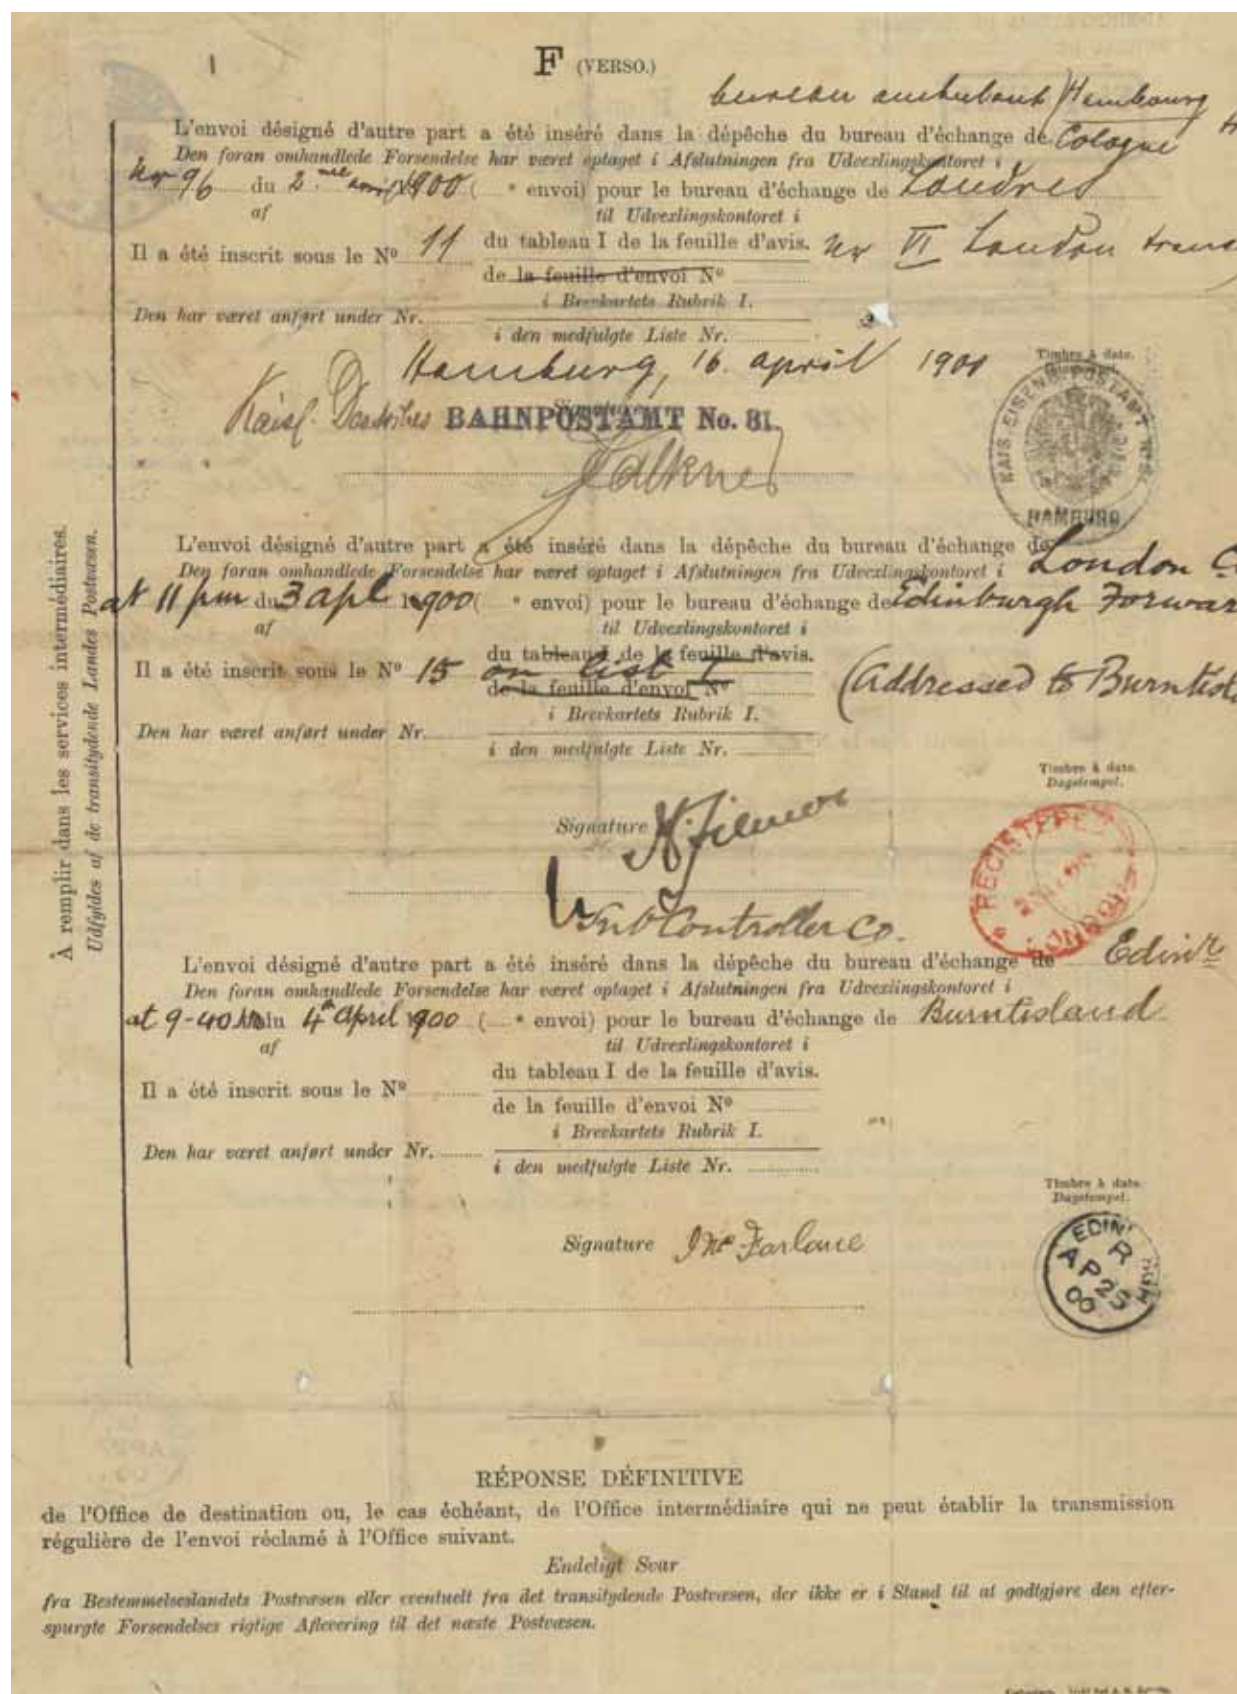 F (VERSO.)
bureau ambulant Hambourg
L'envoi désigné d'autre part a été inséré dans la dépêche du bureau d'échange de Cologne
Den foran omhandlede Forsendelse har været optaget i Afslutningen fra Udvexlingskontoret i
No 96 du 2 avril 1900 ( e envoi) pour le bureau d'échange de Londres
af til Udvexlingskontoret i
Il a été inscrit sous le No 11 du tableau I de la feuille d'avis. VI London
de la feuille d'envoi No
i Brevkartets Rubrik I.
Den har været anført under Nr.
i den medfulgte Liste Nr.
Hamburg, 16. april 1900
Timbre à date.
Kaisl. Deutsches BAHNPOSTAMT No. 81.
KAIS. EISENB. POSTAMT No 81
HAMBURG
L'envoi désigné d'autre part a été inséré dans la dépêche du bureau d'échange de
Den foran omhandlede Forsendelse har været optaget i Afslutningen fra Udvexlingskontoret i London
at 11 pm du 3 apl 1900 ( e envoi) pour le bureau d'échange de Edinburgh Forwar
af til Udvexlingskontoret i
du tableau I de la feuille d'avis.
Il a été inscrit sous le No 15 on list I (Addressed to Burntisla
de la feuille d'envoi No
i Brevkartets Rubrik I.
Den har været anført under Nr.
i den medfulgte Liste Nr.
Timbre à date.
Dagstempel.
Signature
REGISTERED LONDON
Sub Controller Co.
L'envoi désigné d'autre part a été inséré dans la dépêche du bureau d'échange de Edinr
Den foran omhandlede Forsendelse har været optaget i Afslutningen fra Udvexlingskontoret i
at 9-40 AM du 4th April 1900 ( e envoi) pour le bureau d'échange de Burntisland
af til Udvexlingskontoret i
du tableau I de la feuille d'avis.
Il a été inscrit sous le No
de la feuille d'envoi No
i Brevkartets Rubrik I.
Den har været anført under Nr.
i den medfulgte Liste Nr.
Timbre à date.
Dagstempel.
Signature McFarlane
EDIN
R
AP 25
00
À remplir dans les services intermédiaires.
Udfyldes af de transitydende Landes Postvæsen.
RÉPONSE DÉFINITIVE
de l'Office de destination ou, le cas échéant, de l'Office intermédiaire qui ne peut établir la transmission
régulière de l'envoi réclamé à l'Office suivant.
Endeligt Svar
fra Bestemmelseslandets Postvæsen eller eventuelt fra det transitydende Postvæsen, der ikke er i Stand til at godtgjøre den efter-
spurgte Forsendelses rigtige Aflevering til det næste Postvæsen.